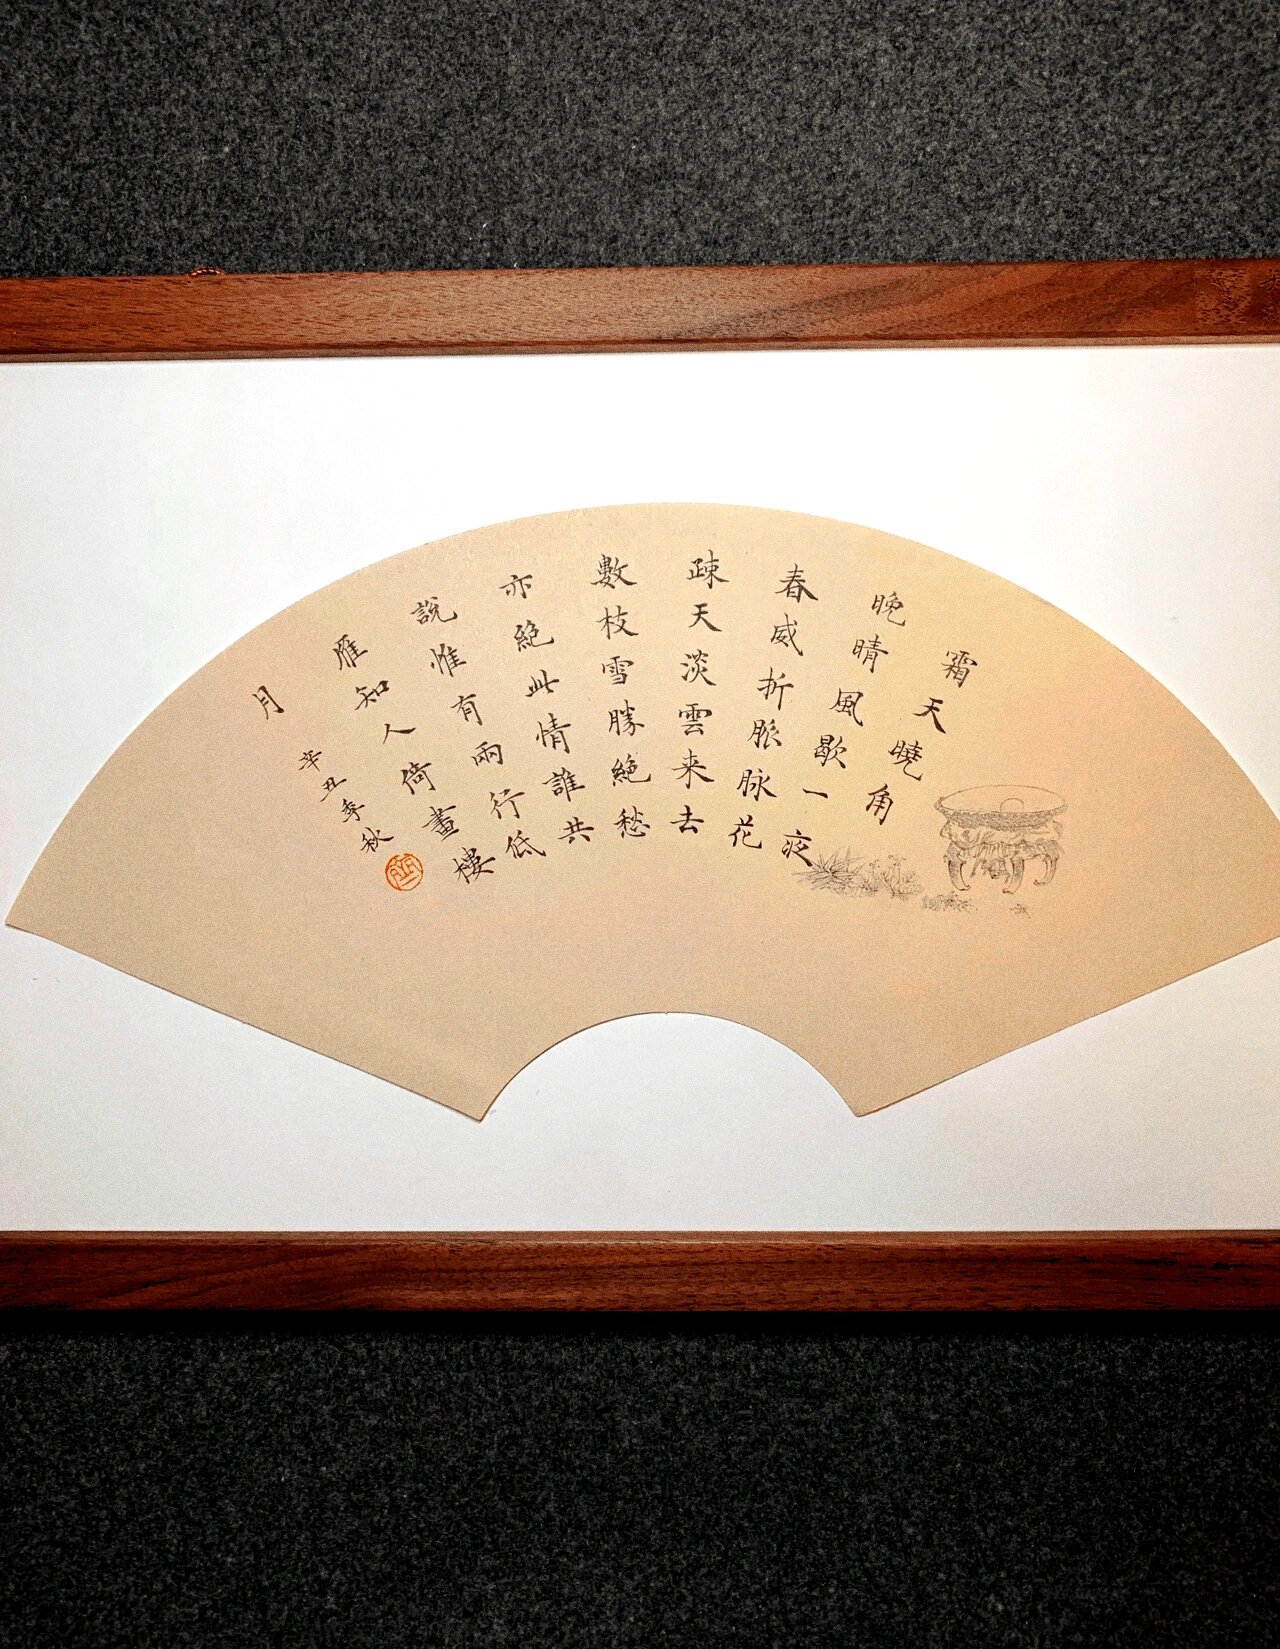 霜天曉角
晚晴風歇一夜
春威折脈脉花
疎天淡雲来去
數枝雪勝絕愁
亦絕此情誰共
說惟有兩行低
雁知人倚畫樓
月
辛丑季秋